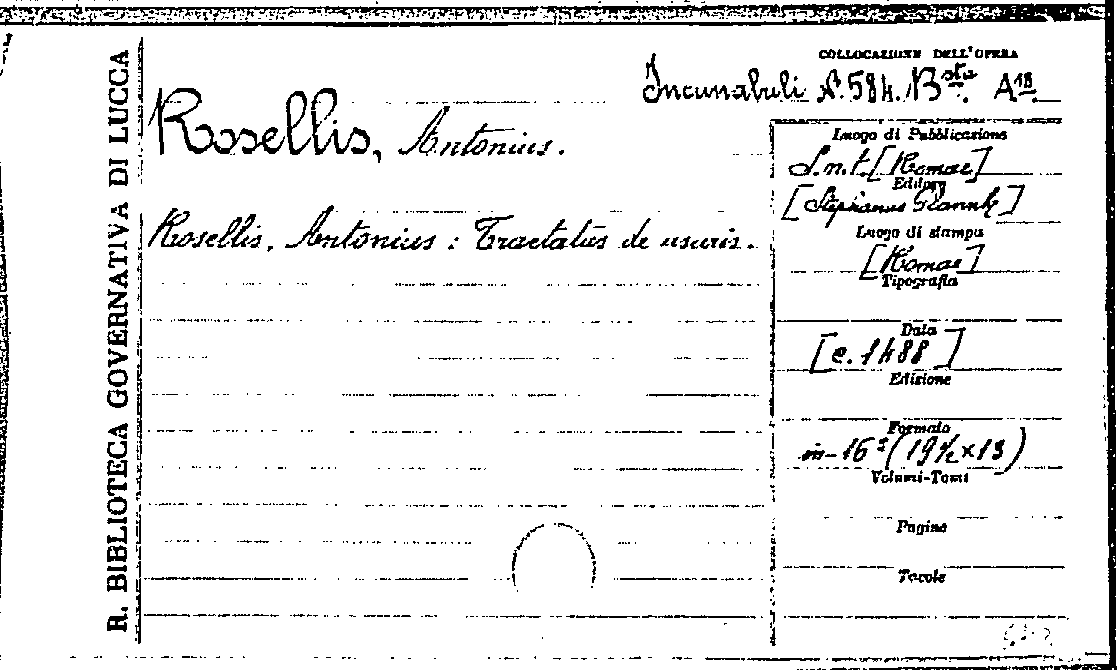 R. BIBLIOTECA GOVERNATIVA DI LUCCA
COLLOCAZIONE DELL'OPERA
Incunabuli N. 584. B.sta A.18
Rosellis, Antonius.
Rosellis, Antonius: Tractatus de usuris.
Luogo di Pubblicazione
S.n.t. [Romae]
Editore
[Stephanus Plannk]
Luogo di stampa
[Romae]
Tipografia
Data
[c. 1488]
Edizione
Formato
in-16º (19½×13)
Volumi-Tomi
Pagine
Tavole